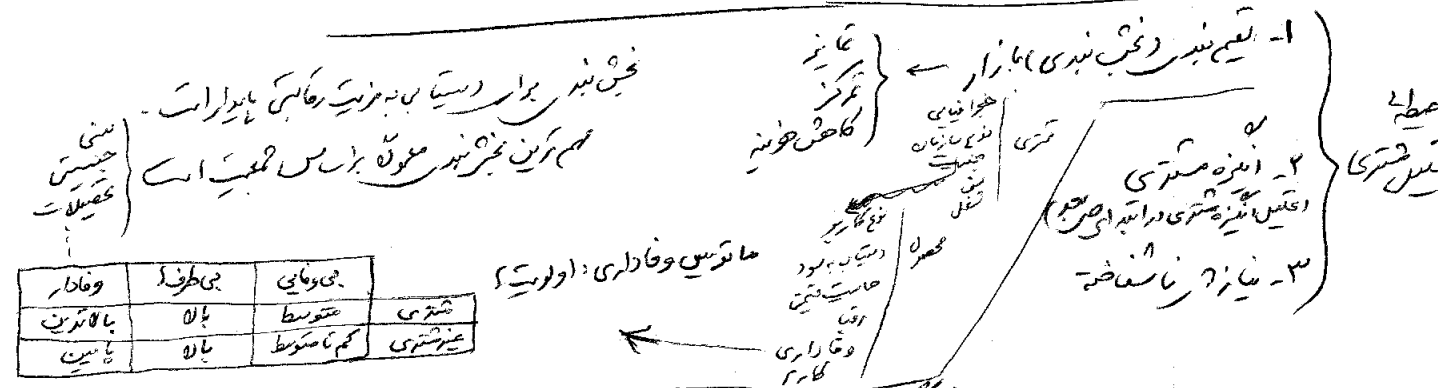 تحلیل مشتری
۱- تقسیم بندی (بخش بندی) بازار ←
تمایز
تمرکز
کاهش هزینه
۲- انگیزه مشتری
(تحلیل انگیزه مشتری در ابتدای
۳- نیازهای ناشناخته
مشتری
جغرافیایی
نوع سازمان
جنسیت
سن
شغل
محصول
نوع کاربر
حساسیت قیمتی
رقبا
وفاداری
کاربرد
بخش بندی برای دستیابی به مزیت رقابتی پایدار است.
مهم ترین بخش بندی معمولا براساس جمعیت است
سنی
جنسیتی
تحصیلات
ماتریس وفاداری: (اولویت)
بی وفایی بی طرف وفادار
مشتری متوسط بالا بالاترین
غیرمشتری کم تا متوسط بالا پایین